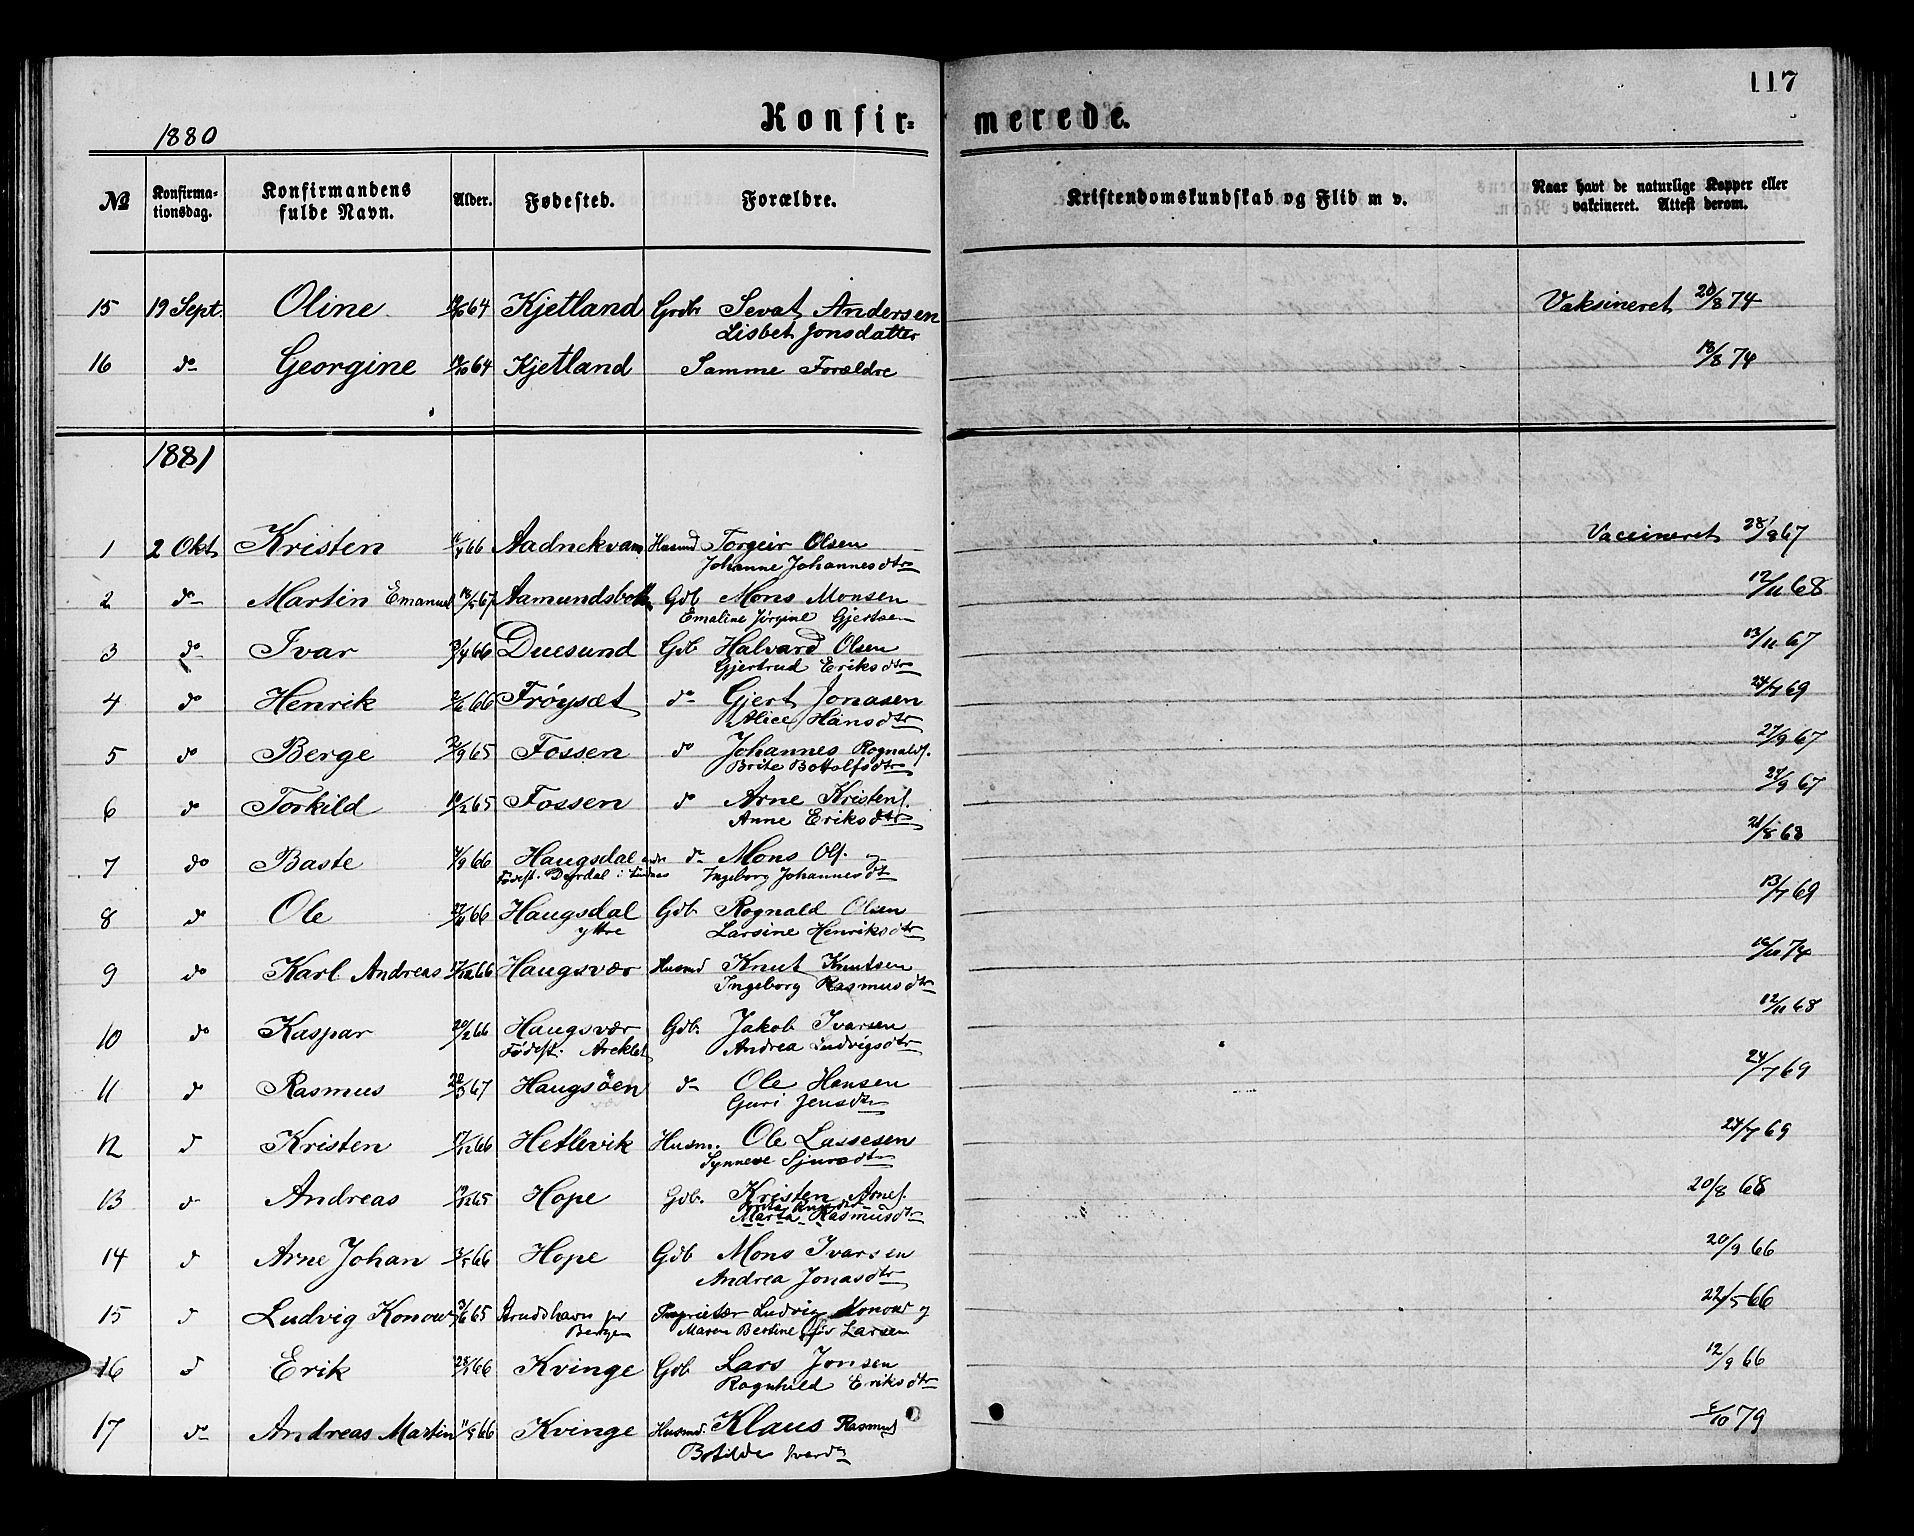 117
Konfirmerede.
1880
No Konfirmationsdag. Konfirmandens fulde Navn. Alder. Fødested. Forældre. Kristendomskundskab og Flid m v. Naar havt de naturlige Kopper eller vakcineret. Attest derom.
15 19 Sept. Oline 64 Kjetland Grdbr Sevat Andersen Vaksineret 20/8 74
Lisbet Jonsdatter
16 do Georgine 64 Kjetland Samme Forældre 18/8 74
1881
1 2 Okt Kristen 66 Aadnekvam Husmd Torgeir Olsen Vaccineret 28/8 67
Johanne Johannesdtr
2 do Martin Emanuel 18/5 67 Aamundsbotn Gdb Mons Monsen 12/11 68
Emaline Jørgine Gjertsen
3 do Ivar 66 Duesund Gdb Halvard Olsen 13/11 67
Gjertrud Eriksdtr
4 do Henrik 66 Frøysæt do Gjert Jonasen 24/7 69
Alice Hansdtr
5 do Berge 65 Fossen do Johannes Rognalds. 27/9 67
Brite Bottolfsdtr
6 do Torkild 65 Fossen do Arne Kristens. 27/9 67
Anne Eriksdtr
7 do Baste 66 Haugsdal do Mons Ols. og 21/8 68
Fødest. i Lindaas Ingeborg Johannesdt
8 do Ole 66 Haugsdal Gdb Rognald Olsen 13/7 69
yttre Larsine Henriksdtr
9 do Karl Andreas 66 Haugsvær Husmd Knut Knutsen 16/10 74
Ingeborg Rasmusdtr
10 do Kaspar 20/2 66 Haugsvær Gdb. Jakob Ivarsen 12/11 68
Fødest. Areklet Andrea Ludvigsdtr
11 do Rasmus 22/3 67 Haugsøen do Ole Hansen 24/7 69
Guri Jensdtr
12 do Kristen 17/12 66 Hetlevik Husm. Ole Lassesen 24/7 69
Synneve Sjursdtr
13 do Andreas 65 Hope Gdb. Kristen Arnes. 20/8 68
Marta Rasmusdtr
14 do Arne Johan 66 Hope Gdb Mons Ivarsen 20/9 66
Andrea Jonasdtr
15 do Ludvig Konow 65 Struddshavn pr Proprietær Ludvig Konow og 22/5 66
Bergen Maren Bertine Larsen
16 do Erik 66 Kvinge Gdb Lars Jonsen 12/9 66
Rognhild Eriksdtr
17 do Andreas Martin 66 Kvinge Husmd. Klaus Rasmus 79
Botilde Iversd